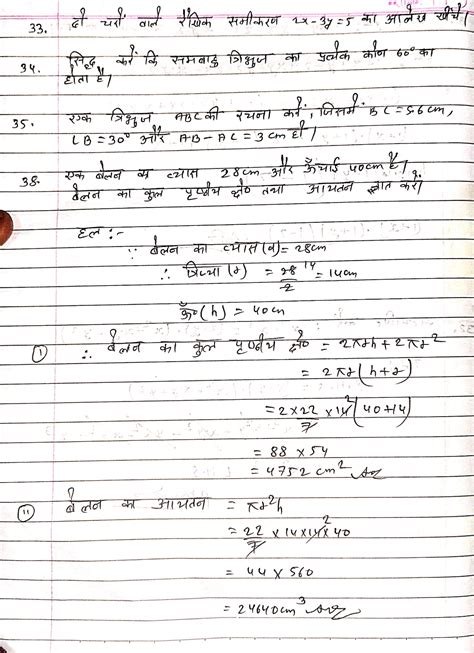 33. दो चरों वाले रैखिक समीकरण 2x-3y=5 का आलेख खींचें।
34. सिद्ध करें कि समबाहु त्रिभुज का प्रत्येक कोण 60° का
होता है।
35. एक त्रिभुज ABC की रचना करें, जिसमें BC=5.6cm,
∠B=30° और AB-AC=3cm हो।
38. एक बेलन का व्यास 28cm और ऊँचाई 40cm है।
बेलन का कुल पृष्ठीय क्षे० तथा आयतन ज्ञात करें।
हल:-
∵ बेलन का व्यास(d)=28cm
∴ त्रिज्या (r) = 28/2 14 = 14cm
ऊँ०(h) = 40cm
(i) ∴ बेलन का कुल पृष्ठीय क्षे० = 2πrh+2πr²
= 2πr(h+r)
= 2×22/7×14 2(40+14)
= 88×54
= 4752cm² Ans
(ii) बेलन का आयतन = πr²h
= 22/7×14×14 2×40
= 44×560
= 24640cm³ Ans